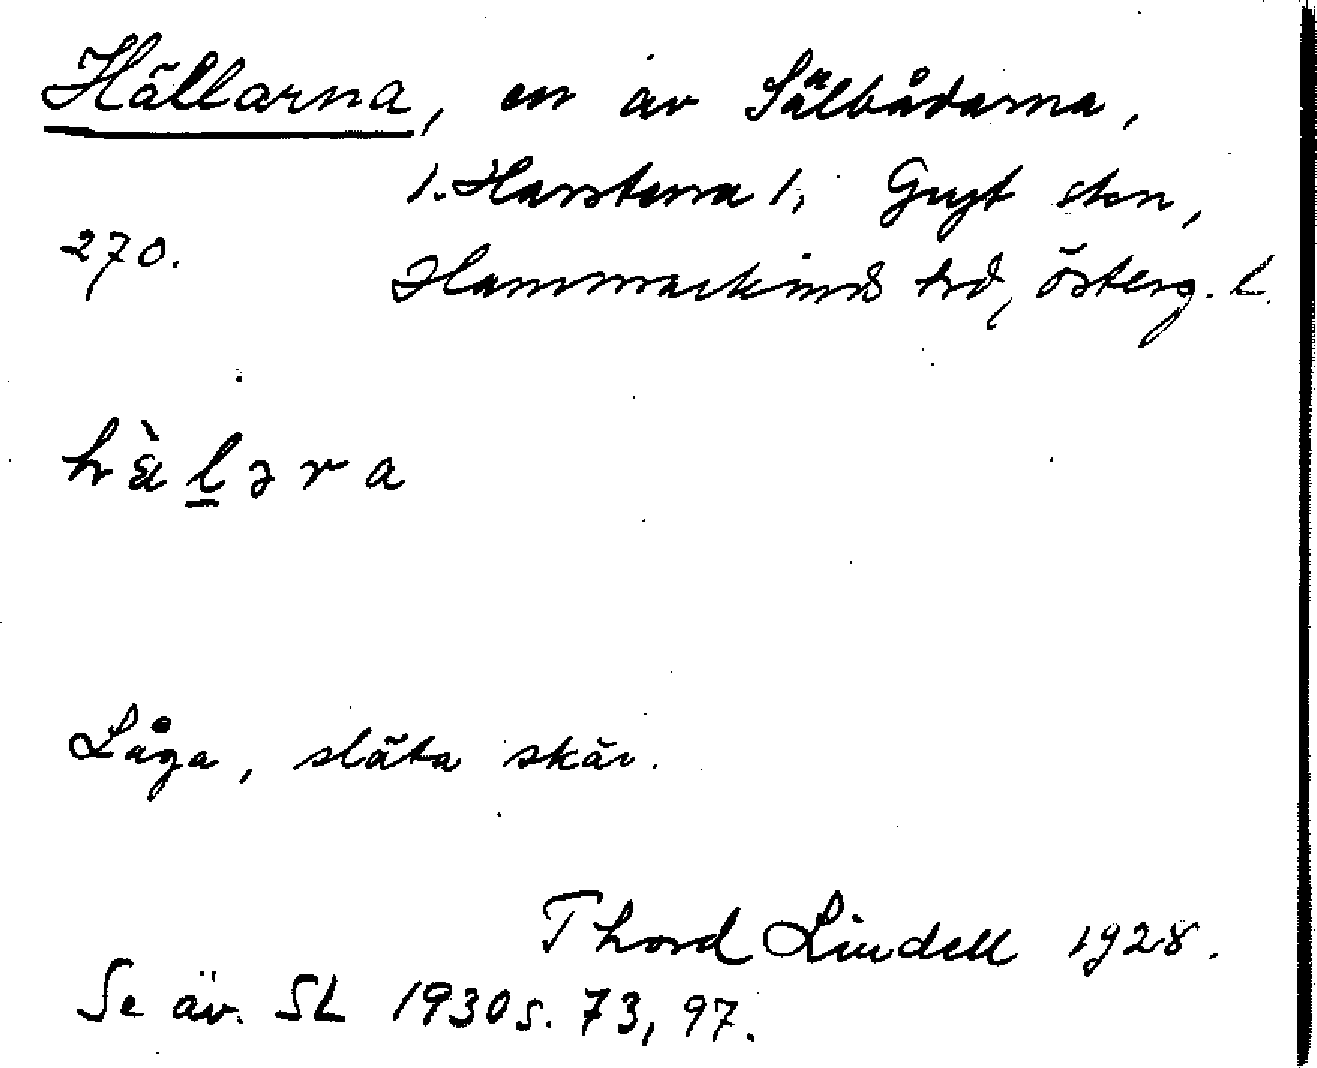 Hällarna, en av Sälbådarna,
1. Harstena 1, Gryt skn,
270.
Hammarkinds hd, Österg. l.
hàləra
Låga, släta skär.
Thord Lindell 1928.
Se äv. SL 1930 s. 73, 97.